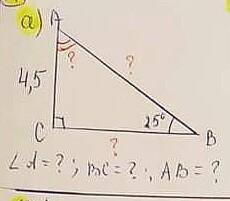 a)
A
?
?
4,5
C
25°
B
?
∠A = ? ; BC = ? ; AB = ?